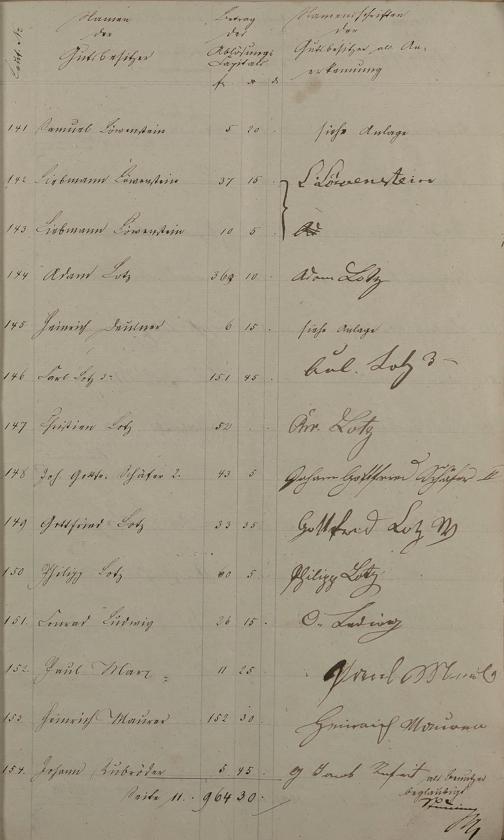 Namen der Gutsbesitzer
Betrag des Ablösungs Capitals
Namensschriften der Gutsbesitzer als Anerkennung
141 Samuel Löwenstein 5 20 siehe Anlage
142 Liebmann Löwenstein 37 15 L Löwenstein
143 Liebmann Löwenstein 10 5
144 Adam Lotz 10 Adam Lotz
145 Heinrich 6 15 siehe Anlage
146 Carl Lotz 3 151 45 Lotz 3
147 Christian Lotz 52 Lotz
148 Joh Gottfr. Schäfer 2. 43 5 Johann Gottfried Schäfer II
149 Gottfried Lotz 33 35 Gottfried Lotz
150 Philipp Lotz 5 Philipp Lotz
151. Conrad Ludwig 26 15 C. Ludwig
152. Paul 11 25 Paul
153. Heinrich Maurer 152 30 Heinrich Maurer
154. Johann 5 45 Jacob als Benutzer
beglaubigt
Seite 11. 964 30